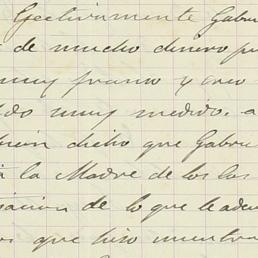 Efectivamente Gabri
de mucho dinero pa
muy franco y creo
do muy medido. a
bien dicho que Gabri
a la Madre de los los
sación de lo que le adeu
os que hizo mientra